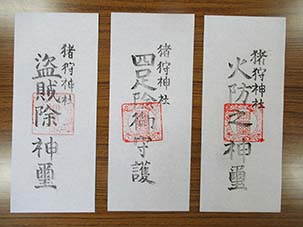 猪狩神社
火防之神璽
猪狩神社
四足除御守護
猪狩神社
盗賊除神璽